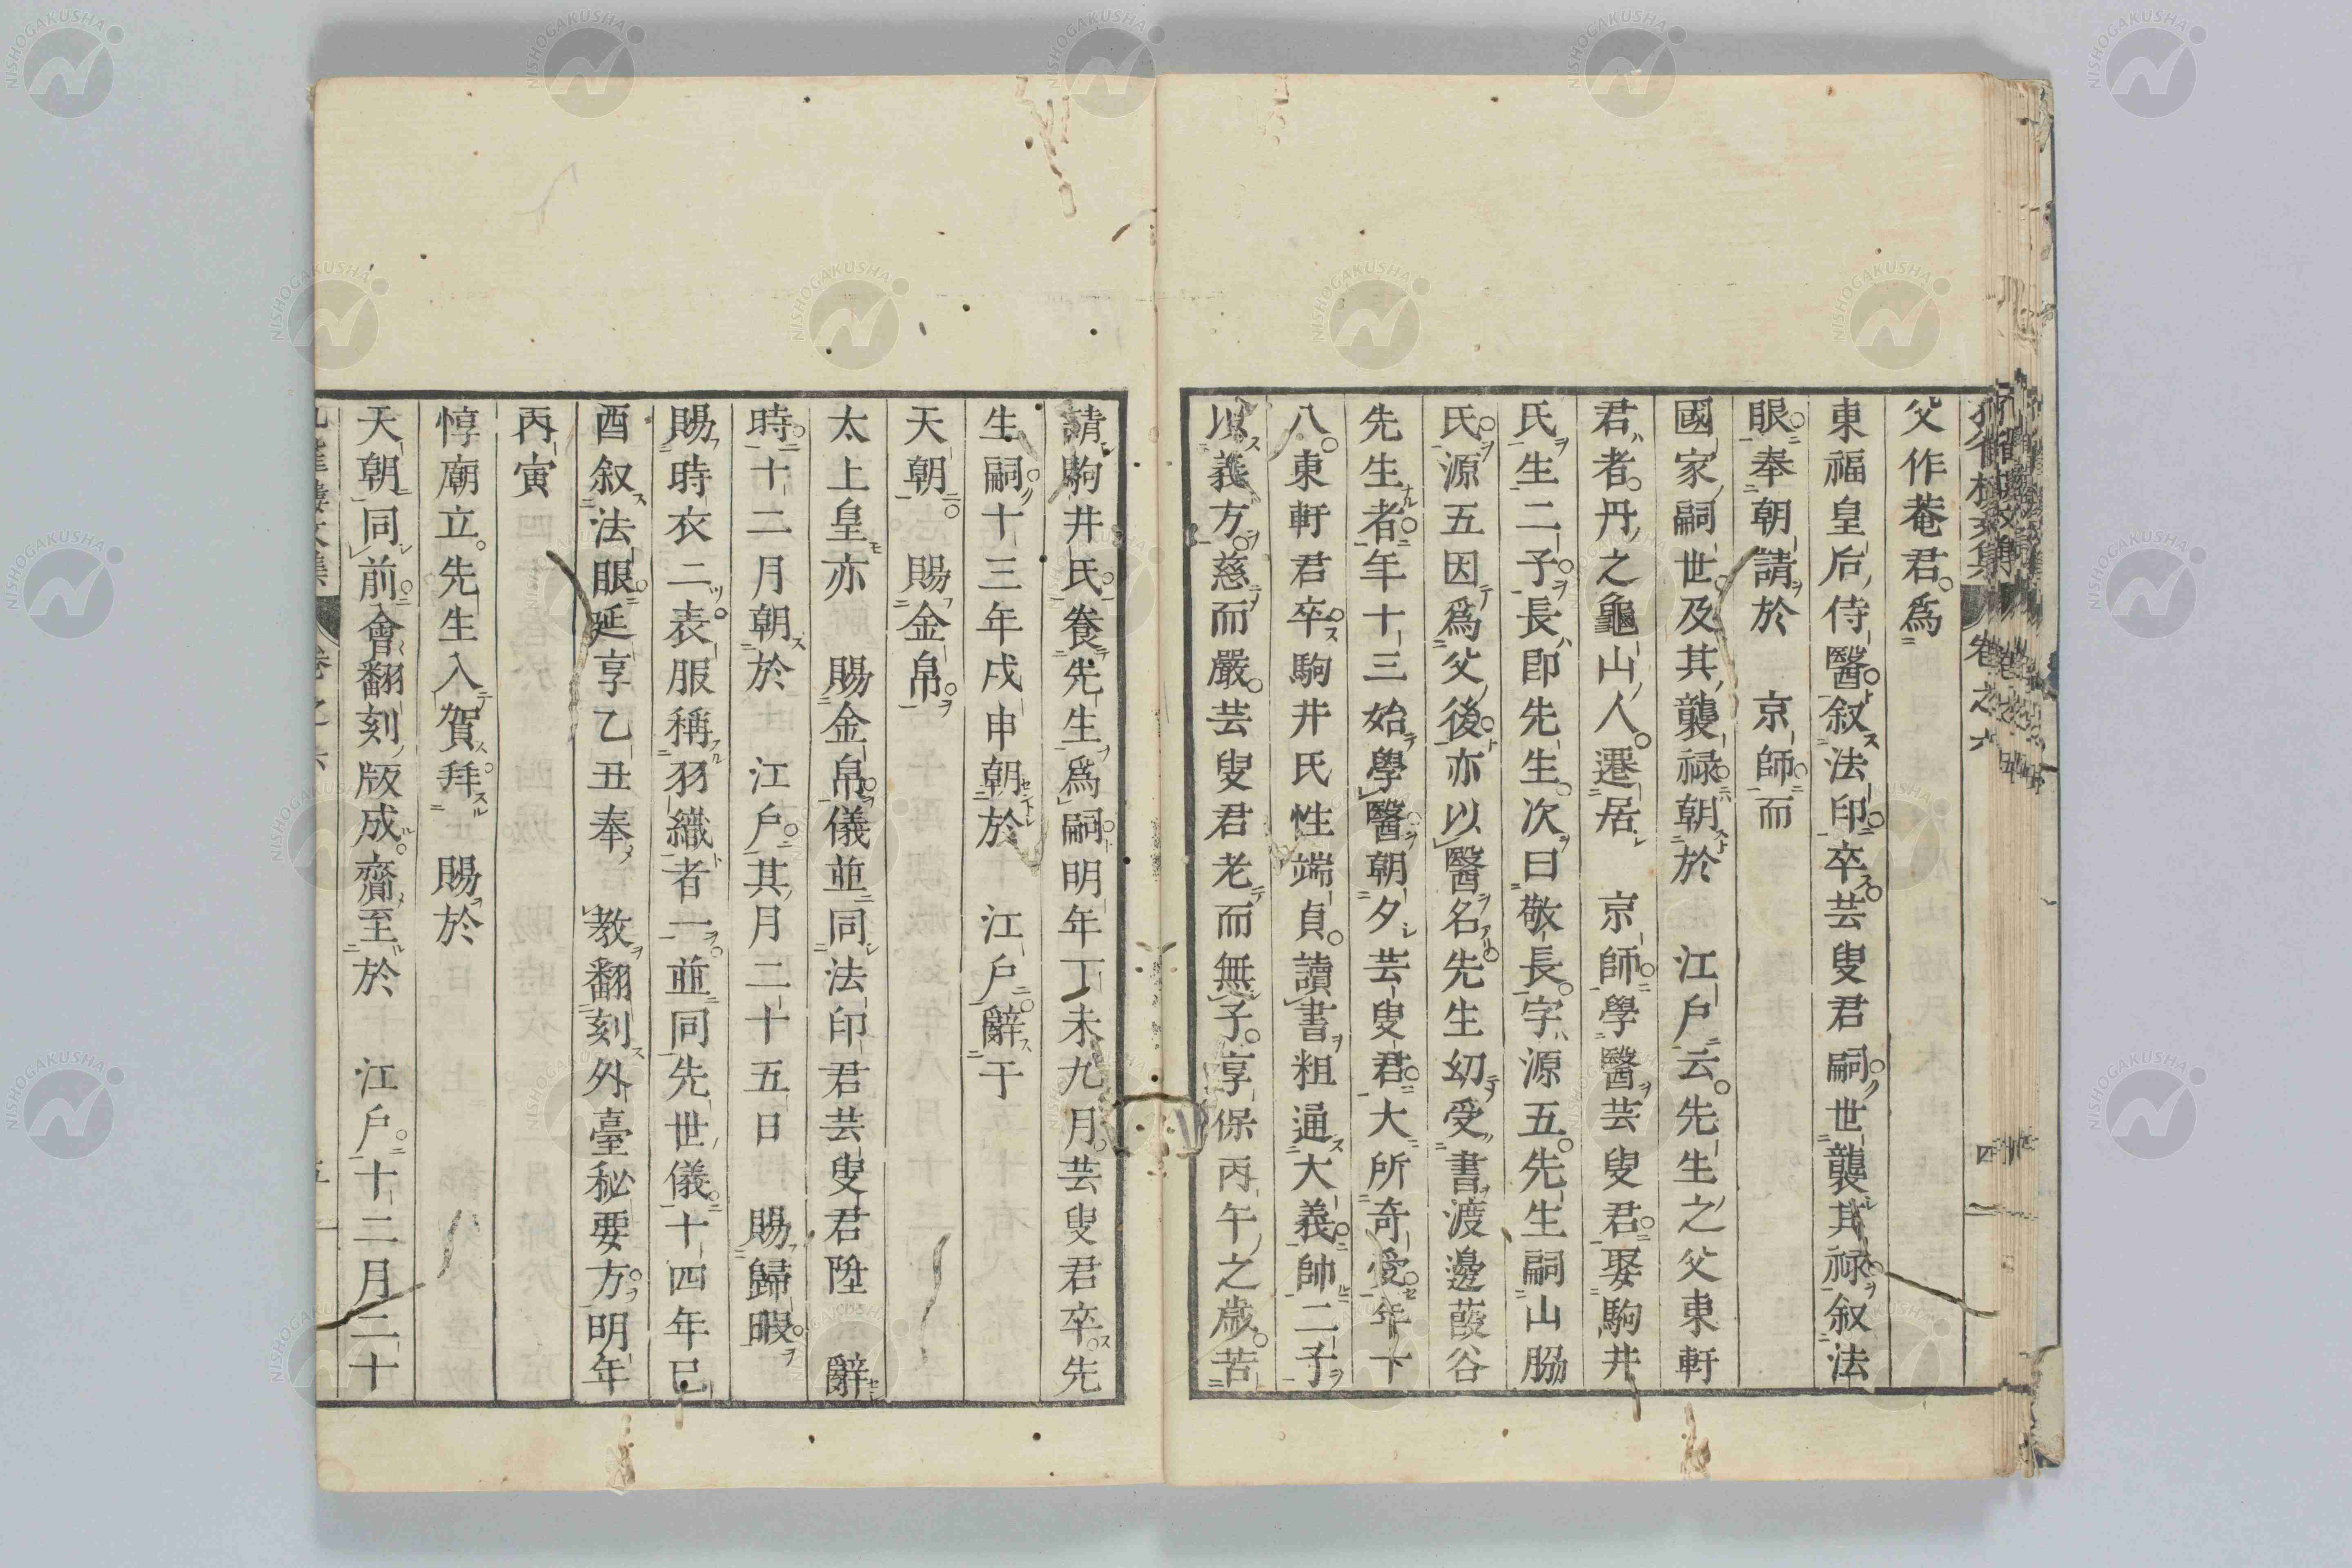 父作菴君爲
東福皇后侍醫叙法印卒芸叟君嗣世襲其禄叙法
眼奉朝請於　京師而
國家嗣世及其襲禄朝於　江戸云先生之父東軒
君者丹之龜山人遷居　京師學醫芸叟君娶駒井
氏生二子長即先生次曰敬長字源五先生嗣山脇
氏源五因爲父後亦以醫名先生幼受書渡邊葭谷
先生者年十三始學醫朝夕芸叟君大所奇受年十
八東軒君卒駒井氏性端貞讀書粗通大義帥二子
以義方慈而嚴芸叟君老而無子享保丙午之歲苦
請駒井氏養先生爲嗣明年丁未九月芸叟君卒先
生嗣十三年戌申朝於　江戸辭于
天朝　賜金帛
太上皇亦　賜金帛儀並同法印君芸叟君陞　辭
時十二月朝於　江戸其月二十五日　賜歸暇
賜時衣二表服稱羽織者一並同先世儀十四年己
酉叙法眼延享乙丑奉　教翻刻外臺秘要方明年
丙寅
惇廟立先生入賀拜　賜於
天朝同前會翻刻版成齎至於　江戸十二月二十
卷之六
四
NISHOGAKUSHA